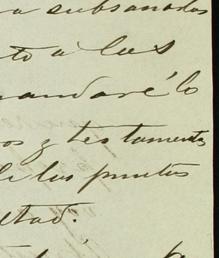 a subsanados
to a los
mandaré lo
os y testamentos
de los puntos
ltad.